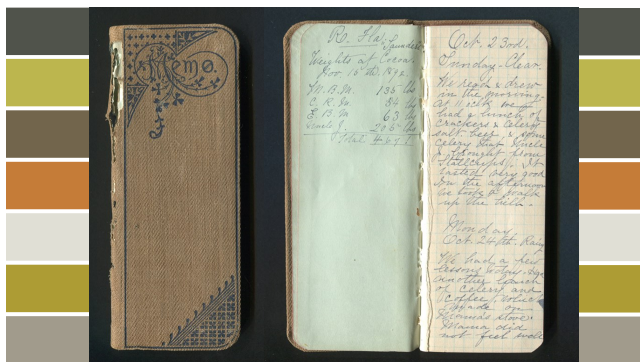 Memo.
R. Fla. Saunders
Weights at Cocoa.
Nov. 15th 1892.
M. B. M. 135 lbs
C. R. M. 84 lbs
E. B. M 63 lbs
205 lbs
Total
Oct. 23rd.
Sunday - Clear.
We read & drew
in the morning.
At 11 o'clk we
had a lunch of
crackers & celery
salt beef, & some
celery that Uncle
brought from
It
tasted very good
In the afternoon
we took a walk
up the hill.
Monday
Oct. 24th. Rainy
We had a few
lessons
another lunch
of celery and
coffee,
made on
Thomas stove.
Mama did
not feel well